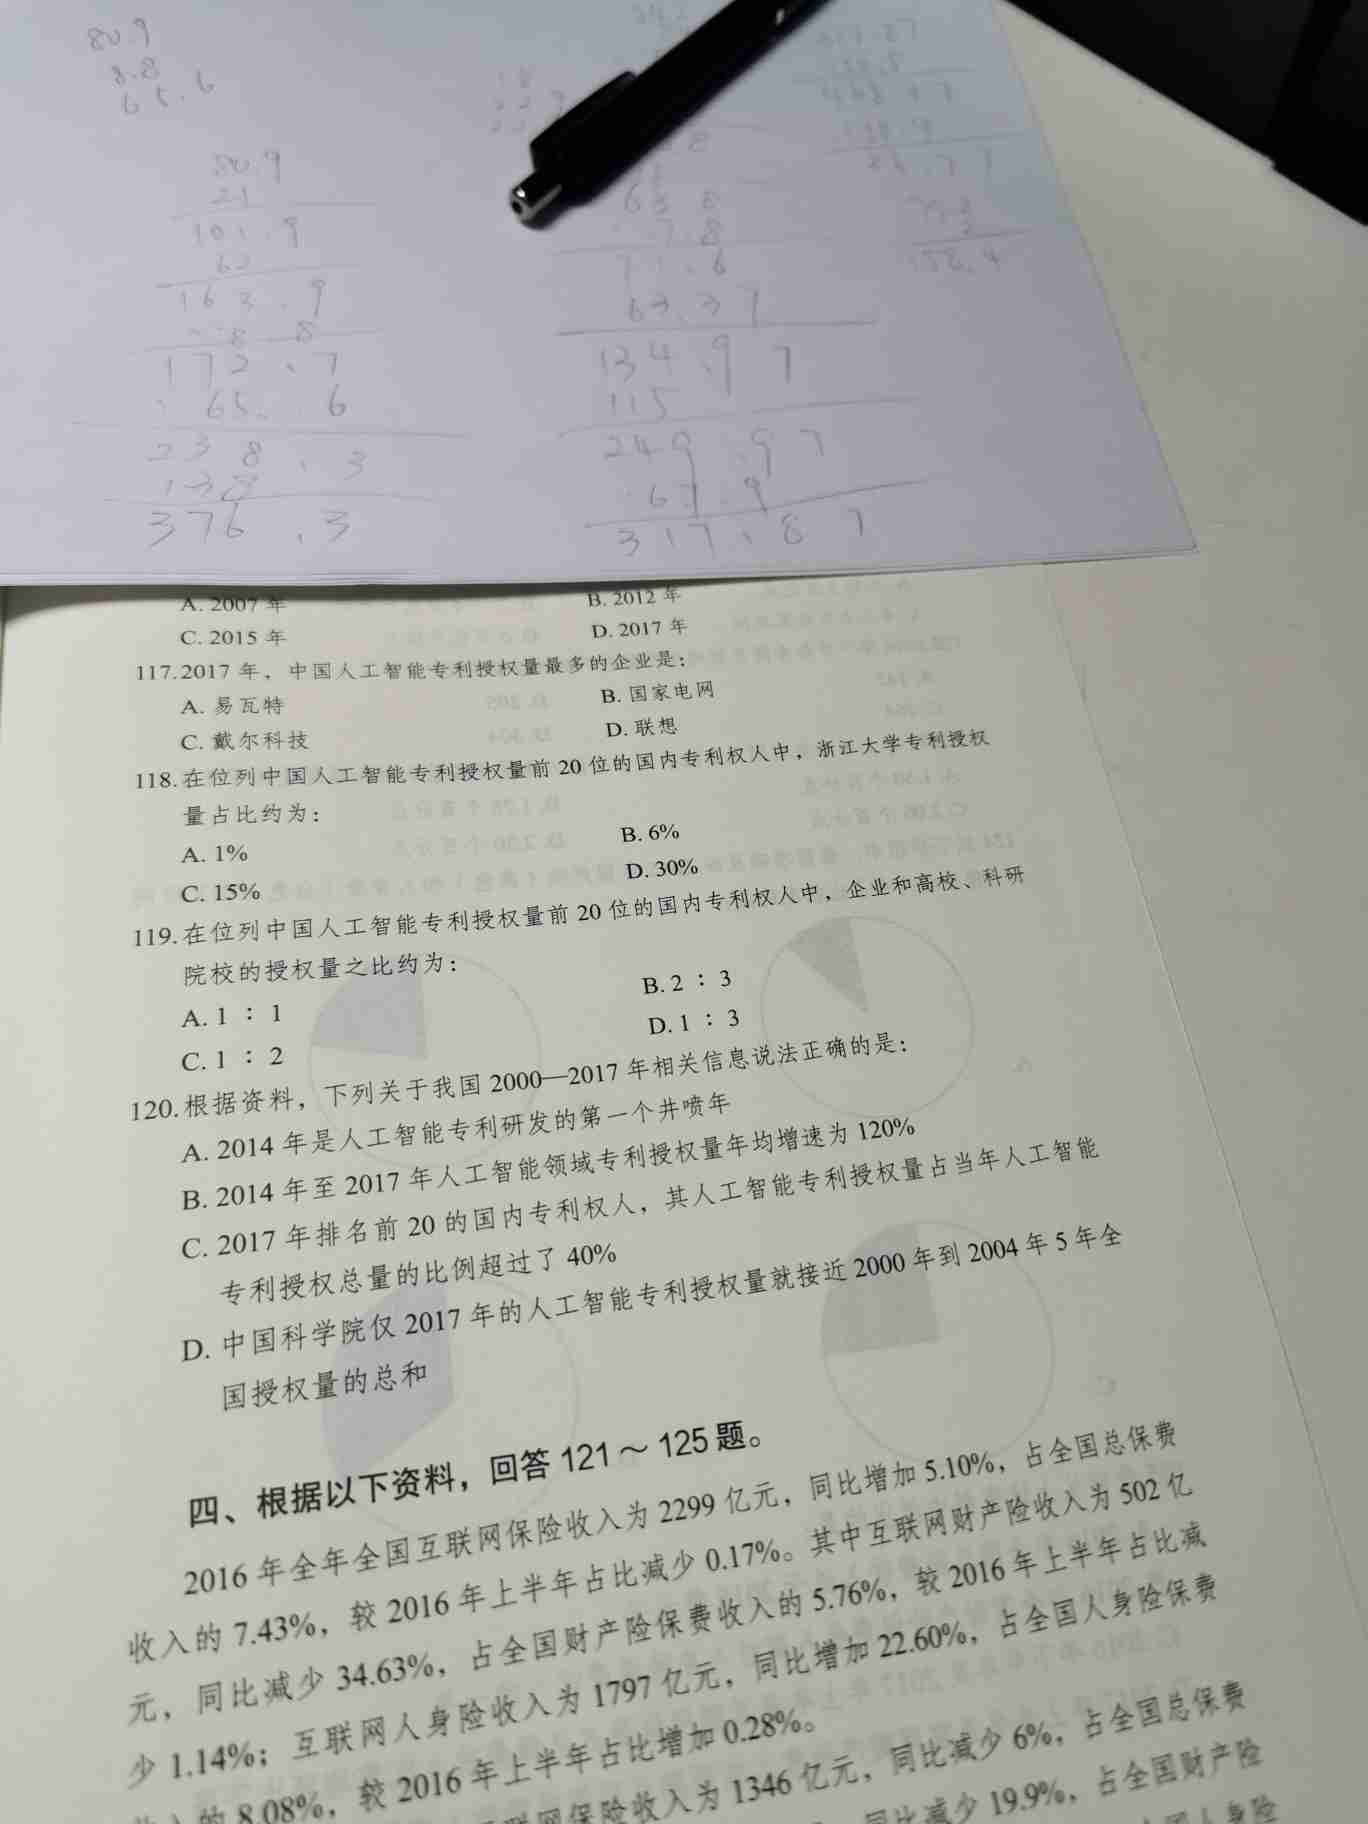 80.9
8.8
65.6
80.9
21
101.9
62
163.9
8.8
172.7
65.6
238.3
138
376.3
63.8
7.8
71.6
63.37
134.97
115
249.97
67.9
317.87
A. 2007 年 B. 2012 年
C. 2015 年 D. 2017 年
117.2017 年，中国人工智能专利授权量最多的企业是：
A. 易瓦特 B. 国家电网
C. 戴尔科技 D. 联想
118.在位列中国人工智能专利授权量前 20 位的国内专利权人中，浙江大学专利授权
量占比约为：
A. 1% B. 6%
C. 15% D. 30%
119.在位列中国人工智能专利授权量前 20 位的国内专利权人中，企业和高校、科研
院校的授权量之比约为：
A. 1 ∶ 1 B. 2 ∶ 3
C. 1 ∶ 2 D. 1 ∶ 3
120.根据资料，下列关于我国 2000—2017 年相关信息说法正确的是：
A. 2014 年是人工智能专利研发的第一个井喷年
B. 2014 年至 2017 年人工智能领域专利授权量年均增速为 120%
C. 2017 年排名前 20 的国内专利权人，其人工智能专利授权量占当年人工智能
专利授权总量的比例超过了 40%
D. 中国科学院仅 2017 年的人工智能专利授权量就接近 2000 年到 2004 年 5 年全
国授权量的总和
四、根据以下资料，回答 121～125 题。
2016 年全年全国互联网保险收入为 2299 亿元，同比增加 5.10%，占全国总保费
收入的 7.43%，较 2016 年上半年占比减少 0.17%。其中互联网财产险收入为 502 亿
元，同比减少 34.63%，占全国财产险保费收入的 5.76%，较 2016 年上半年占比减
少 1.14%；互联网人身险收入为 1797 亿元，同比增加 22.60%，占全国人身险保费
的 8.08%，较 2016 年上半年占比增加 0.28%。
联网保险收入为 1346 亿元，同比减少 6%，占全国总保费
同比减少 19.9%，占全国财产险
人身险